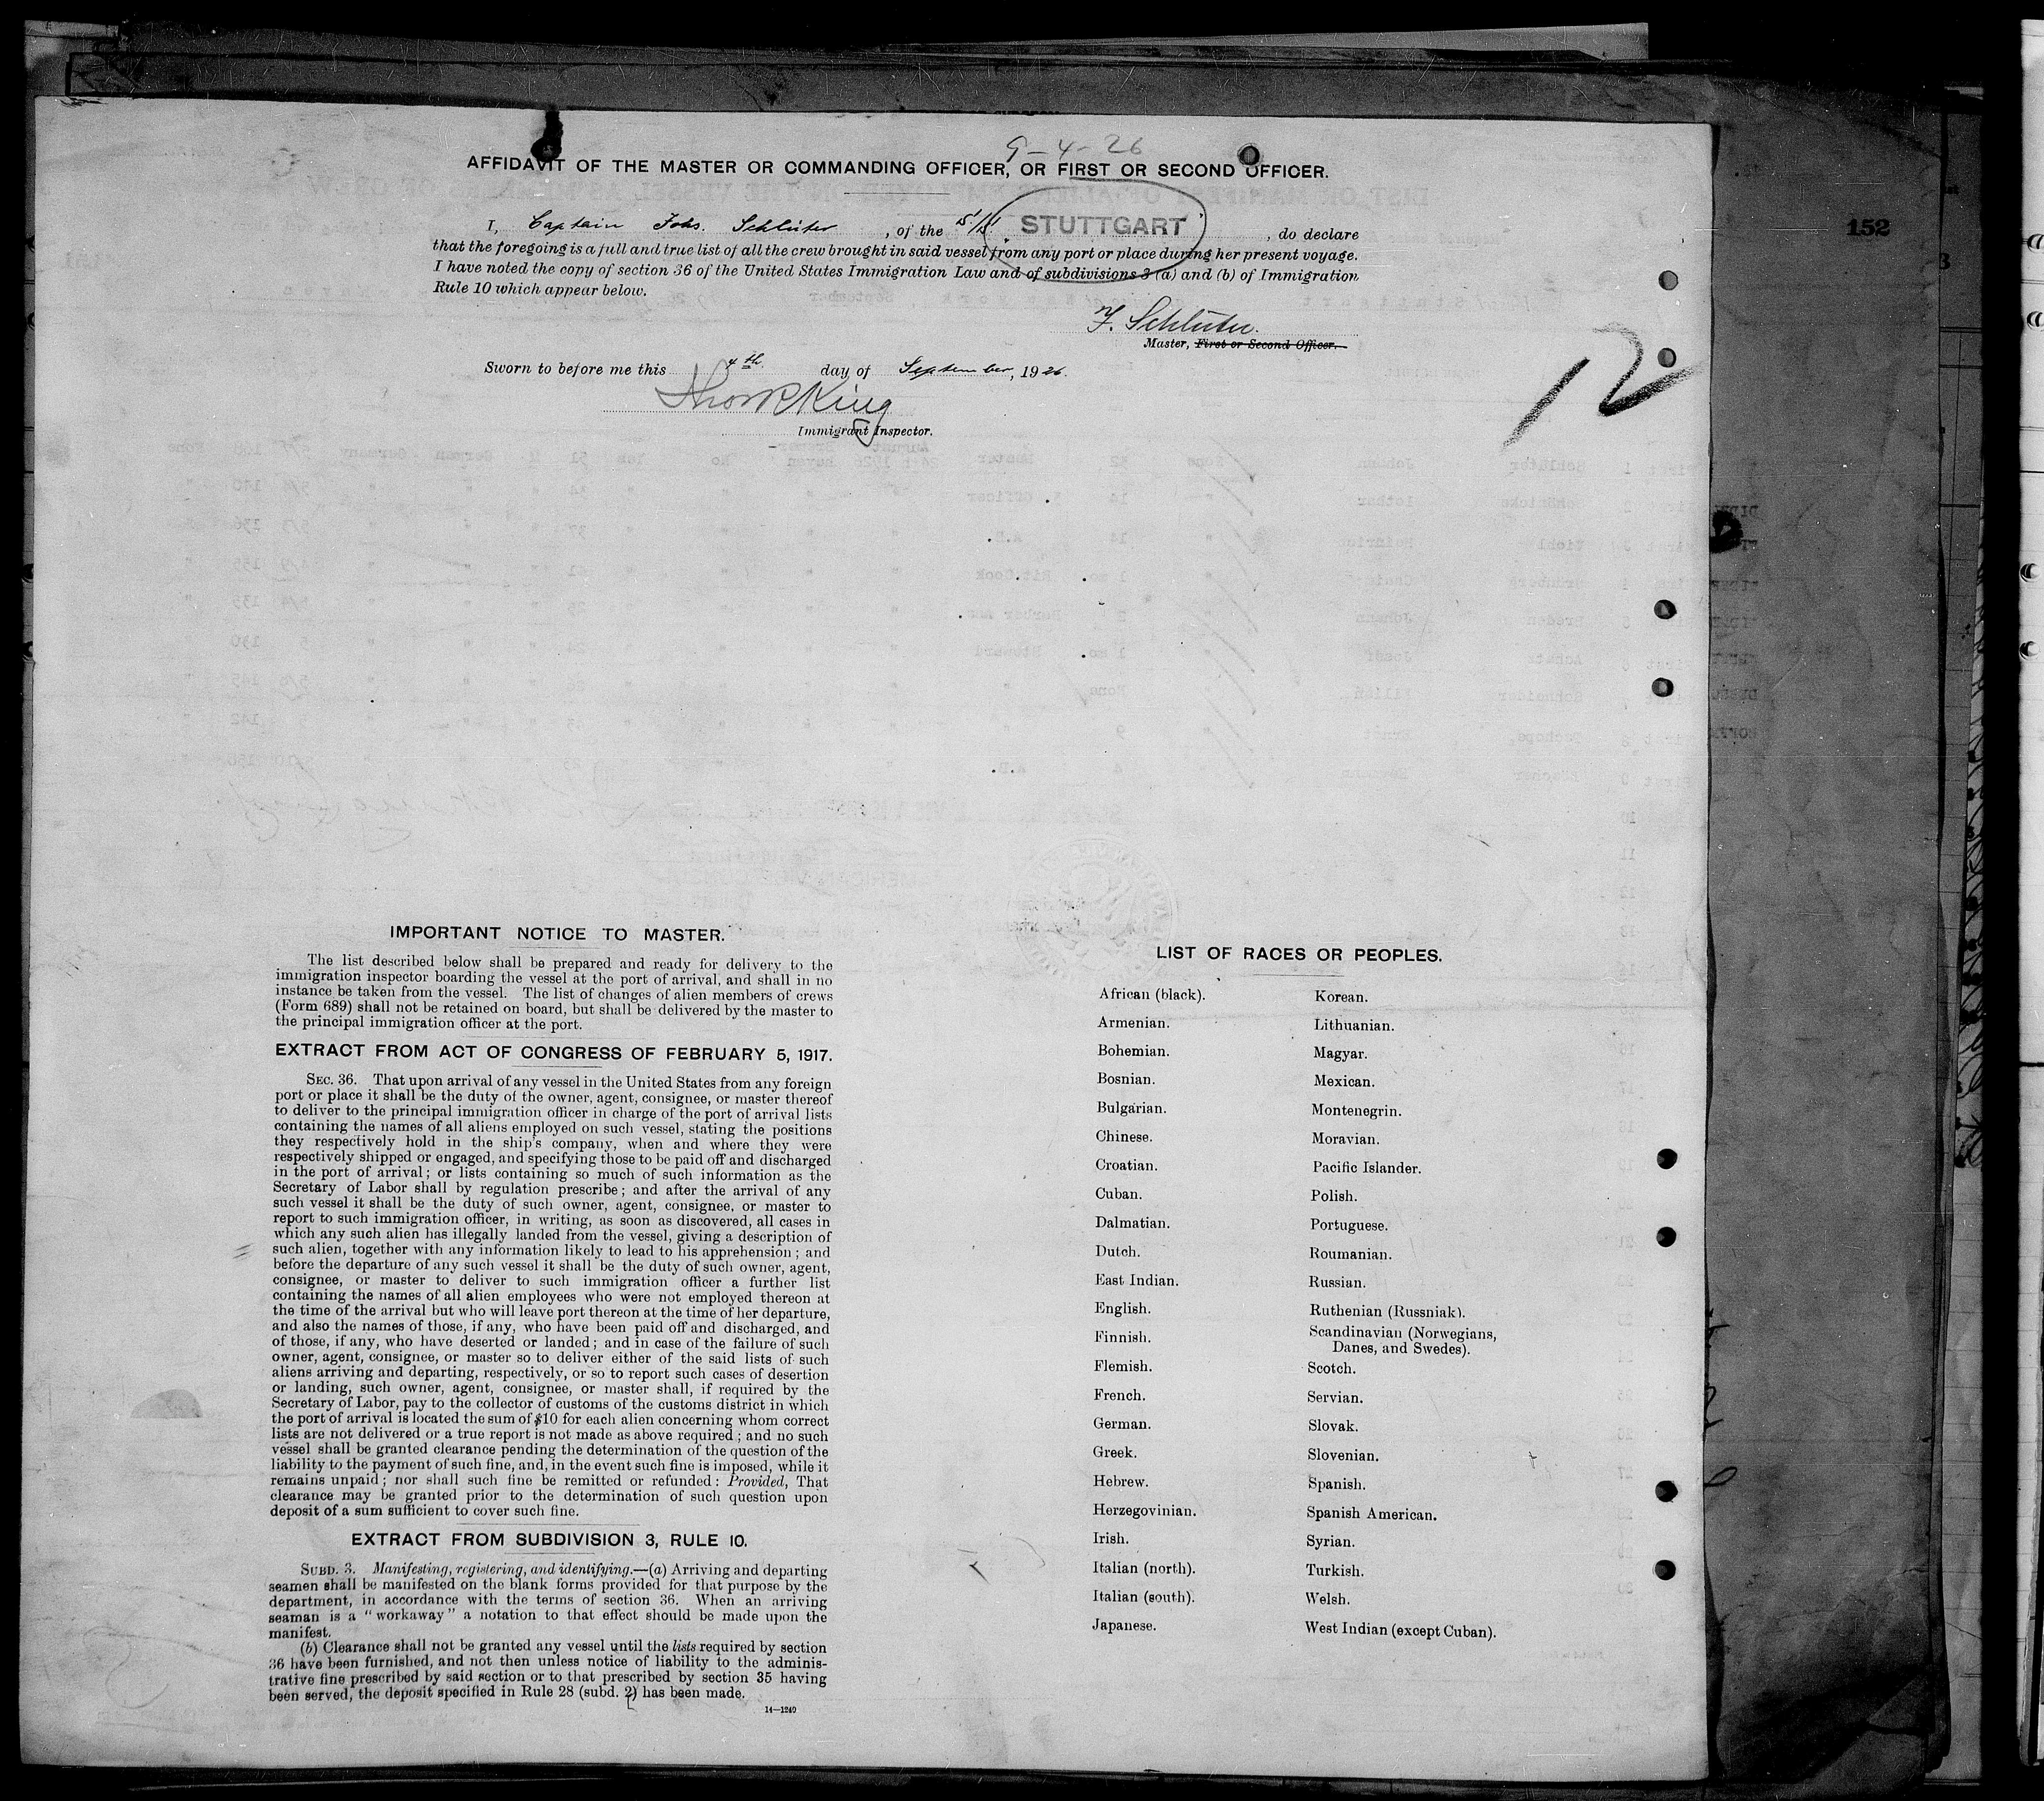 9-4-26
AFFIDAVIT OF THE MASTER OR COMMANDING OFFICER, OR FIRST OR SECOND OFFICER.
I, Captain Johs. Schlüter, of the S/S STUTTGART, do declare
that the foregoing is a full and true list of all the crew brought in said vessel from any port or place during her present voyage.
I have noted the copy of section 36 of the United States Immigration Law and of subdivisions 3 (a) and (b) of Immigration
Rule 10 which appear below.
152
Schlüter.
Master, First or Second Officer.
12
Sworn to before me this 4th day of September, 1926.
King
Immigrant Inspector.
IMPORTANT NOTICE TO MASTER.
The list described below shall be prepared and ready for delivery to the
immigration inspector boarding the vessel at the port of arrival, and shall in no
instance be taken from the vessel. The list of changes of alien members of crews
(Form 689) shall not be retained on board, but shall be delivered by the master to
the principal immigration officer at the port.
EXTRACT FROM ACT OF CONGRESS OF FEBRUARY 5, 1917.
SEC. 36. That upon arrival of any vessel in the United States from any foreign
port or place it shall be the duty of the owner, agent, consignee, or master thereof
to deliver to the principal immigration officer in charge of the port of arrival lists
containing the names of all aliens employed on such vessel, stating the positions
they respectively hold in the ship's company, when and where they were
respectively shipped or engaged, and specifying those to be paid off and discharged
in the port of arrival; or lists containing so much of such information as the
Secretary of Labor shall by regulation prescribe; and after the arrival of any
such vessel it shall be the duty of such owner, agent, consignee, or master to
report to such immigration officer, in writing, as soon as discovered, all cases in
which any such alien has illegally landed from the vessel, giving a description of
such alien, together with any information likely to lead to his apprehension; and
before the departure of any such vessel it shall be the duty of such owner, agent,
consignee, or master to deliver to such immigration officer a further list
containing the names of all alien employees who were not employed thereon at
the time of the arrival but who will leave port thereon at the time of her departure,
and also the names of those, if any, who have been paid off and discharged, and
of those, if any, who have deserted or landed; and in case of the failure of such
owner, agent, consignee, or master so to deliver either of the said lists of such
aliens arriving and departing, respectively, or so to report such cases of desertion
or landing, such owner, agent, consignee, or master shall, if required by the
Secretary of Labor, pay to the collector of customs of the customs district in which
the port of arrival is located the sum of $10 for each alien concerning whom correct
lists are not delivered or a true report is not made as above required; and no such
vessel shall be granted clearance pending the determination of the question of the
liability to the payment of such fine, and, in the event such fine is imposed, while it
remains unpaid; nor shall such fine be remitted or refunded: Provided, That
clearance may be granted prior to the determination of such question upon
deposit of a sum sufficient to cover such fine.
EXTRACT FROM SUBDIVISION 3, RULE 10.
SUBD. 3. Manifesting, registering, and identifying.—(a) Arriving and departing
seamen shall be manifested on the blank forms provided for that purpose by the
department, in accordance with the terms of section 36. When an arriving
seaman is a "workaway" a notation to that effect should be made upon the
manifest.
(b) Clearance shall not be granted any vessel until the lists required by section
36 have been furnished, and not then unless notice of liability to the adminis-
trative fine prescribed by said section or to that prescribed by section 35 having
been served, the deposit specified in Rule 28 (subd. 2) has been made.
14—1240
LIST OF RACES OR PEOPLES.
African (black).
Armenian.
Bohemian.
Bosnian.
Bulgarian.
Chinese.
Croatian.
Cuban.
Dalmatian.
Dutch.
East Indian.
English.
Finnish.
Flemish.
French.
German.
Greek.
Hebrew.
Herzegovinian.
Irish.
Italian (north).
Italian (south).
Japanese.
Korean.
Lithuanian.
Magyar.
Mexican.
Montenegrin.
Moravian.
Pacific Islander.
Polish.
Portuguese.
Roumanian.
Russian.
Ruthenian (Russniak).
Scandinavian (Norwegians,
Danes, and Swedes).
Scotch.
Servian.
Slovak.
Slovenian.
Spanish.
Spanish American.
Syrian.
Turkish.
Welsh.
West Indian (except Cuban).